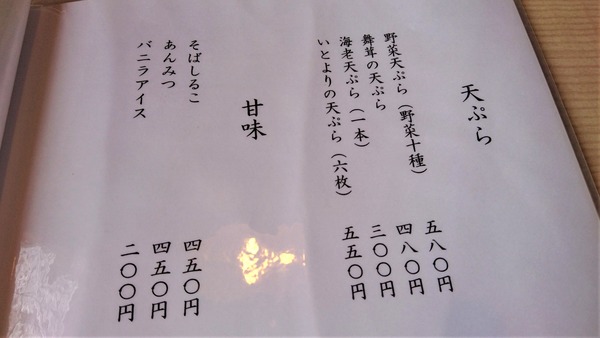 天ぷら
野菜天ぷら（野菜十種） 五八〇円
舞茸の天ぷら 四八〇円
海老天ぷら（一本） 三〇〇円
いとよりの天ぷら（六枚） 五五〇円
甘味
そばしるこ 四五〇円
あんみつ 四五〇円
バニラアイス 二〇〇円